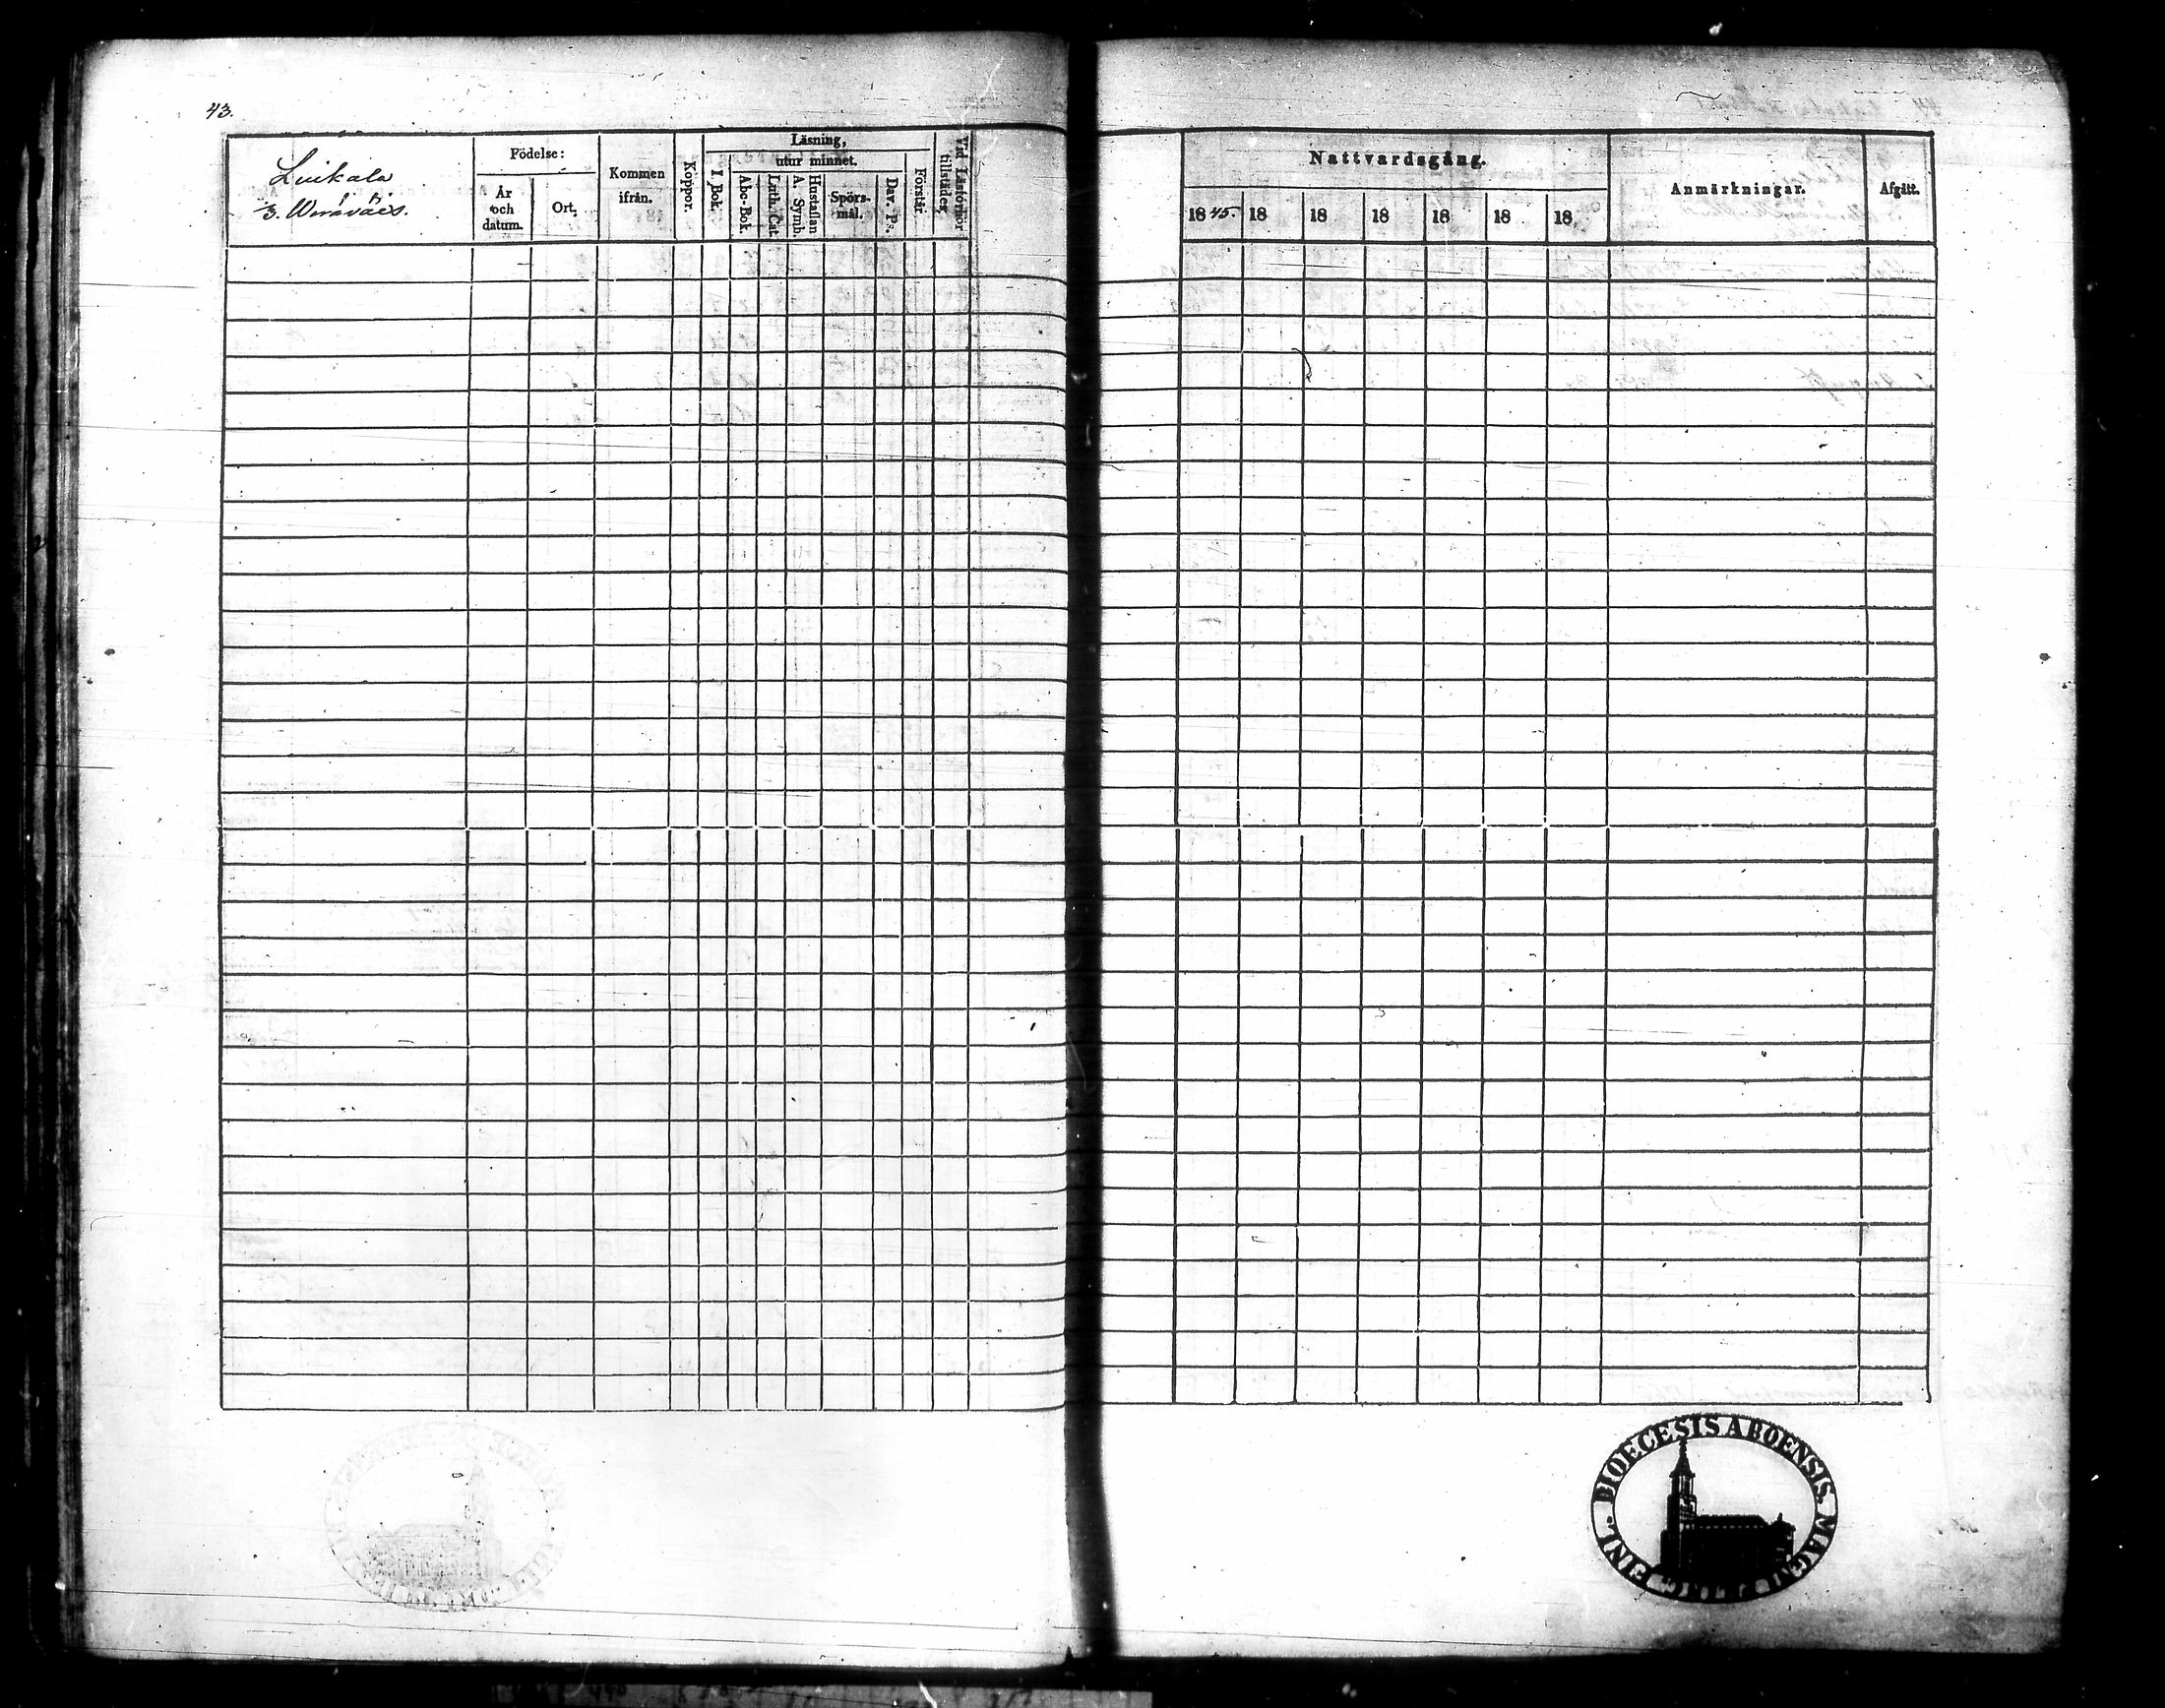 43.
Luikala
3.
Födelse:
År och datum.
Ort.
Kommen ifrån.
Koppor.
Läsning,
I Bok.
utur minnet.
Abc-Bok
Luth. Cat
Hustaflan A. Symb.
Spörs-mål.
Dav. Ps.
Förstår
Vid Läsförhör tillstädes,
Nattvardsgång.
1845. 18 18 18 18 18 18.
Anmärkningar.
Afgått.
DIOECESIS ABOENSIS. MAGNI
FINL.